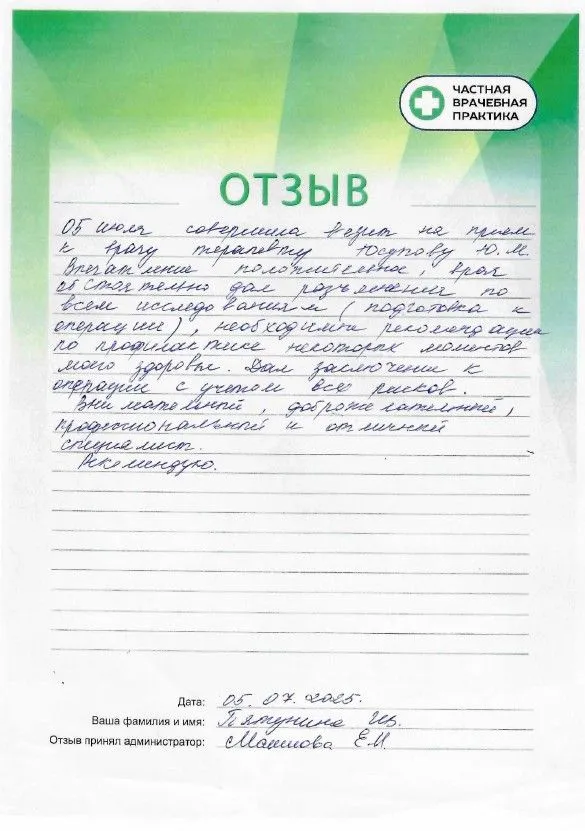 ЧАСТНАЯ
ВРАЧЕБНАЯ
ПРАКТИКА
ОТЗЫВ
05 июля совершила визит на прием
к врачу терапевту Юсупову Ю.М.
Впечатление положительное, врач
обстоятельно дал разъяснения по
всем исследованиям (подготовка к
операции), необходимые рекомендации
по профилактике некоторых моментов
моего здоровья. Дал заключение к
операции с учетом всех рисков.
Внимательный, доброжелательный,
профессиональный и отличный
специалист.
Рекомендую.
Дата: 05.07.2025.
Ваша фамилия и имя:
Отзыв принял администратор: Е.М.